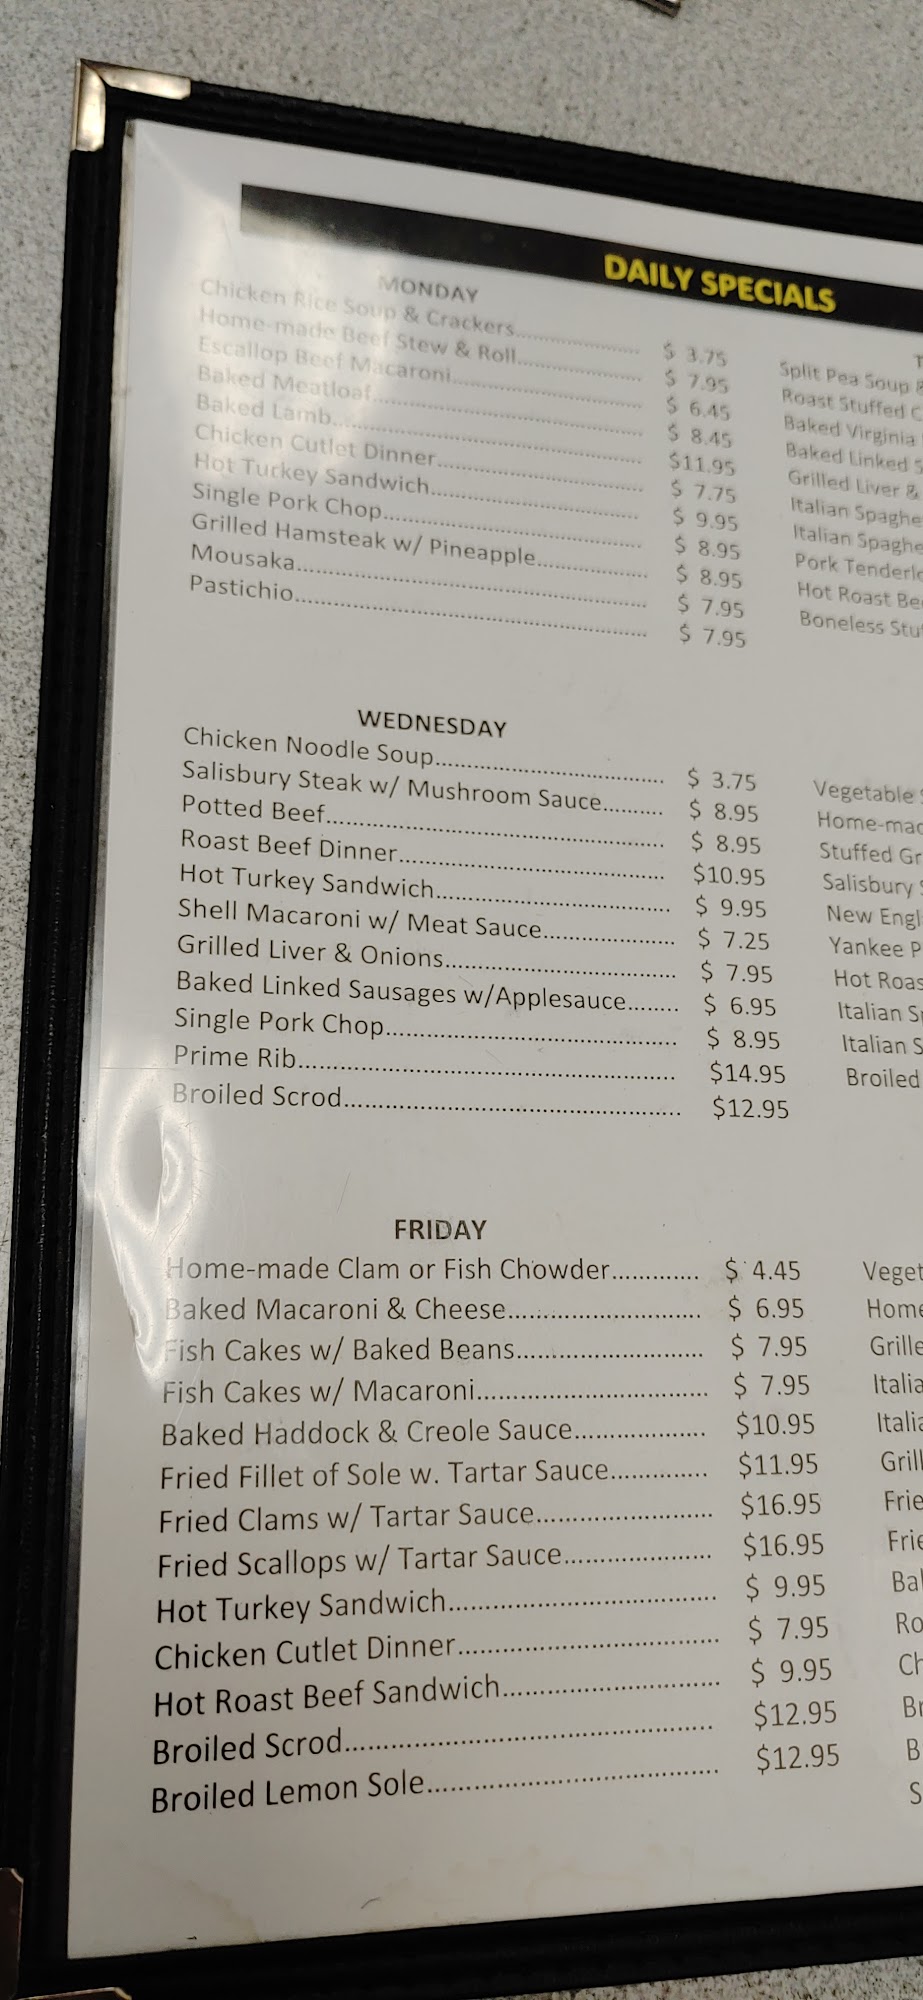 DAILY SPECIALS
MONDAY
Chicken Rice Soup & Crackers.................... $ 3.75
Home-made Beef Stew & Roll.................... $ 7.95
Escallop Beef Macaroni.................... $ 6.45
Baked Meatloaf.................... $ 8.45
Baked Lamb.................... $11.95
Chicken Cutlet Dinner.................... $ 7.75
Hot Turkey Sandwich.................... $ 9.95
Single Pork Chop.................... $ 8.95
Grilled Hamsteak w/ Pineapple.................... $ 8.95
Mousaka.................... $ 7.95
Pastichio.................... $ 7.95
T
Split Pea Soup &
Roast Stuffed C
Baked Virginia
Baked Linked S
Grilled Liver &
Italian Spaghe
Italian Spaghe
Pork Tenderlo
Hot Roast Bee
Boneless Stuf
WEDNESDAY
Chicken Noodle Soup.................... $ 3.75
Salisbury Steak w/ Mushroom Sauce.......... $ 8.95
Potted Beef.................... $ 8.95
Roast Beef Dinner.................... $10.95
Hot Turkey Sandwich.................... $ 9.95
Shell Macaroni w/ Meat Sauce.................... $ 7.25
Grilled Liver & Onions.................... $ 7.95
Baked Linked Sausages w/Applesauce........ $ 6.95
Single Pork Chop.................... $ 8.95
Prime Rib.................... $14.95
Broiled Scrod.................... $12.95
Vegetable
Home-mad
Stuffed Gr
Salisbury
New Engl
Yankee P
Hot Roas
Italian S
Italian S
Broiled
FRIDAY
Home-made Clam or Fish Chowder............. $ 4.45
Baked Macaroni & Cheese.................... $ 6.95
Fish Cakes w/ Baked Beans.................... $ 7.95
Fish Cakes w/ Macaroni.................... $ 7.95
Baked Haddock & Creole Sauce.................. $10.95
Fried Fillet of Sole w. Tartar Sauce.............. $11.95
Fried Clams w/ Tartar Sauce.................... $16.95
Fried Scallops w/ Tartar Sauce.................... $16.95
Hot Turkey Sandwich.................... $ 9.95
Chicken Cutlet Dinner.................... $ 7.95
Hot Roast Beef Sandwich.................... $ 9.95
Broiled Scrod.................... $12.95
Broiled Lemon Sole.................... $12.95
Veget
Home
Grille
Italia
Italia
Grill
Frie
Frie
Bal
Ro
Ch
Br
B
S